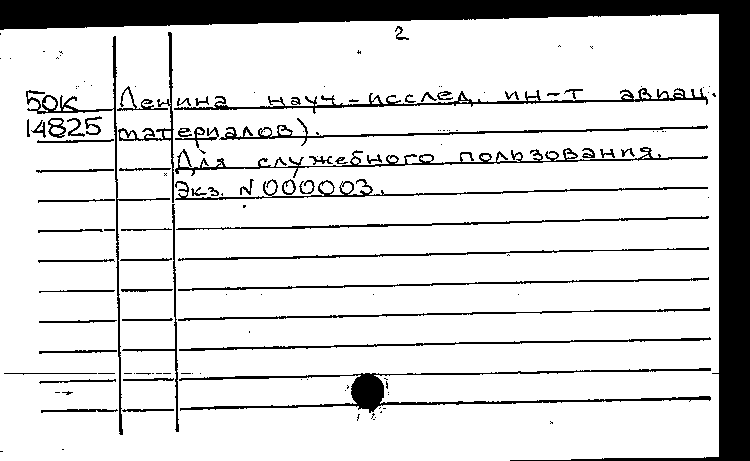 2
50К Ленина науч-исслед. ин-т авиац.
14825 материалов).
Для служебного пользования.
Экз. N 000003.